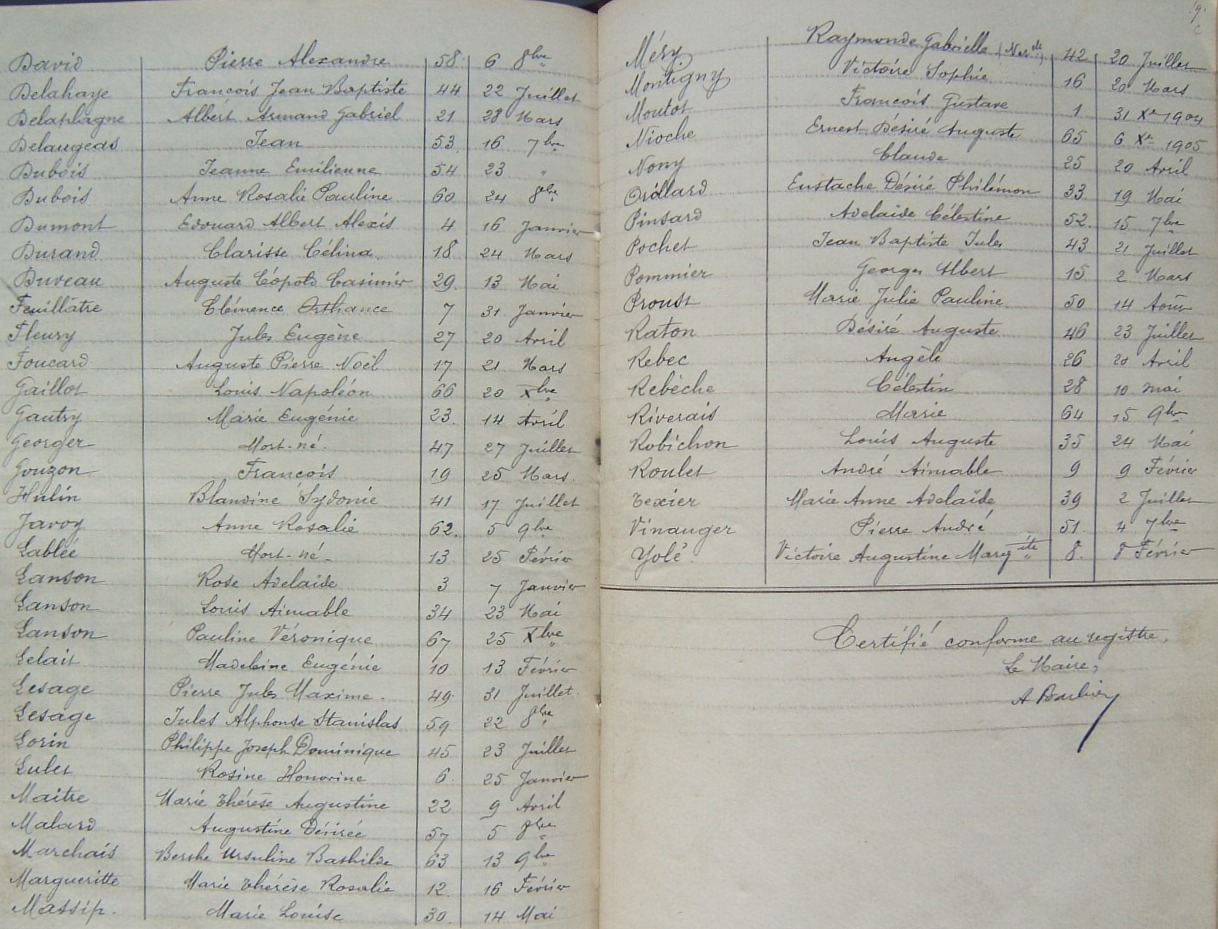 David Pierre Alexandre 58 6 8bre
Delahaye François Jean Baptiste 44 22 Juillet
Delaplagne Albert Armand Gabriel 21 28 Mars
Delaugeas Jean 53 16 7bre
Dubois Jeanne Emilienne 54 23 "
Dubois Anne Rosalie Pauline 60 24 8bre
Dumont Edouard Albert Alexis 4 16 Janvier
Durand Clarisse Célina 18 24 Mars
Duveau Auguste Léopold Casimir 29 13 Mai
Feuillâtre Clémence Orthance 7 31 Janvier
Fleury Jules Eugène 27 20 Avril
Foucard Auguste Pierre Noël 17 21 Mars
Gaillot Louis Napoléon 66 20 Xbre
Gautry Marie Eugénie 23 14 Avril
Georger Mort-né 47 27 Juillet
Gouzon François 19 25 Mars
Hulin Blandine Sydonie 41 17 Juillet
Javoy Anne Rosalie 62 5 9bre
Lablée Mort-né 13 25 Février
Lanson Rose Adelaïde 3 7 Janvier
Lanson Louis Aimable 34 23 Mai
Lanson Pauline Véronique 67 25 Xbre
Lelait Madeleine Eugénie 10 13 Février
Lesage Pierre Jules Maxime 49 31 Juillet
Lesage Jules Alphonse Stanislas 59 22 8bre
Lorin Philippe Joseph Dominique 45 23 Juillet
Lulet Rosine Honorine 6 25 Janvier
Maitre Marie Thérèse Augustine 22 9 Avril
Malard Augustine Désirée 57 5 8bre
Marchais Berthe Ursuline Bathilde 63 13 9bre
Margueritte Marie Thérèse Rosalie 12 16 Février
Massip Marie Louise 30 14 Mai
Méry Raymonde Gabrielle 42 20 Juillet
Montigny Victoire Sophie 16 20 Mars
Moutot François Gustave 1 31 Xre 1904
Nioche Ernest Désiré Auguste 65 6 Xre 1905
Nony Claude 25 20 Avril
Orillard Eustache Désiré Philémon 33 19 Mai
Pinsard Adelaïde Célestine 52 15 7bre
Pochet Jean Baptiste Jules 43 21 Juillet
Pommier Georges Albert 15 2 Mars
Proust Marie Julie Pauline 50 14 Août
Raton Désiré Auguste 46 23 Juillet
Rebec Angèle 26 20 Avril
Rebèche Célestin 28 10 mai
Riverais Marie 64 15 9bre
Robichon Louis Auguste 35 24 Mai
Roulet André Aimable 9 9 Février
Texier Marie Anne Adelaïde 39 2 Juillet
Vinauger Pierre André 51 4 7bre
Yolé Victoire Augustine Margite 8 8 Février
Certifié conforme au registre,
Le Maire,